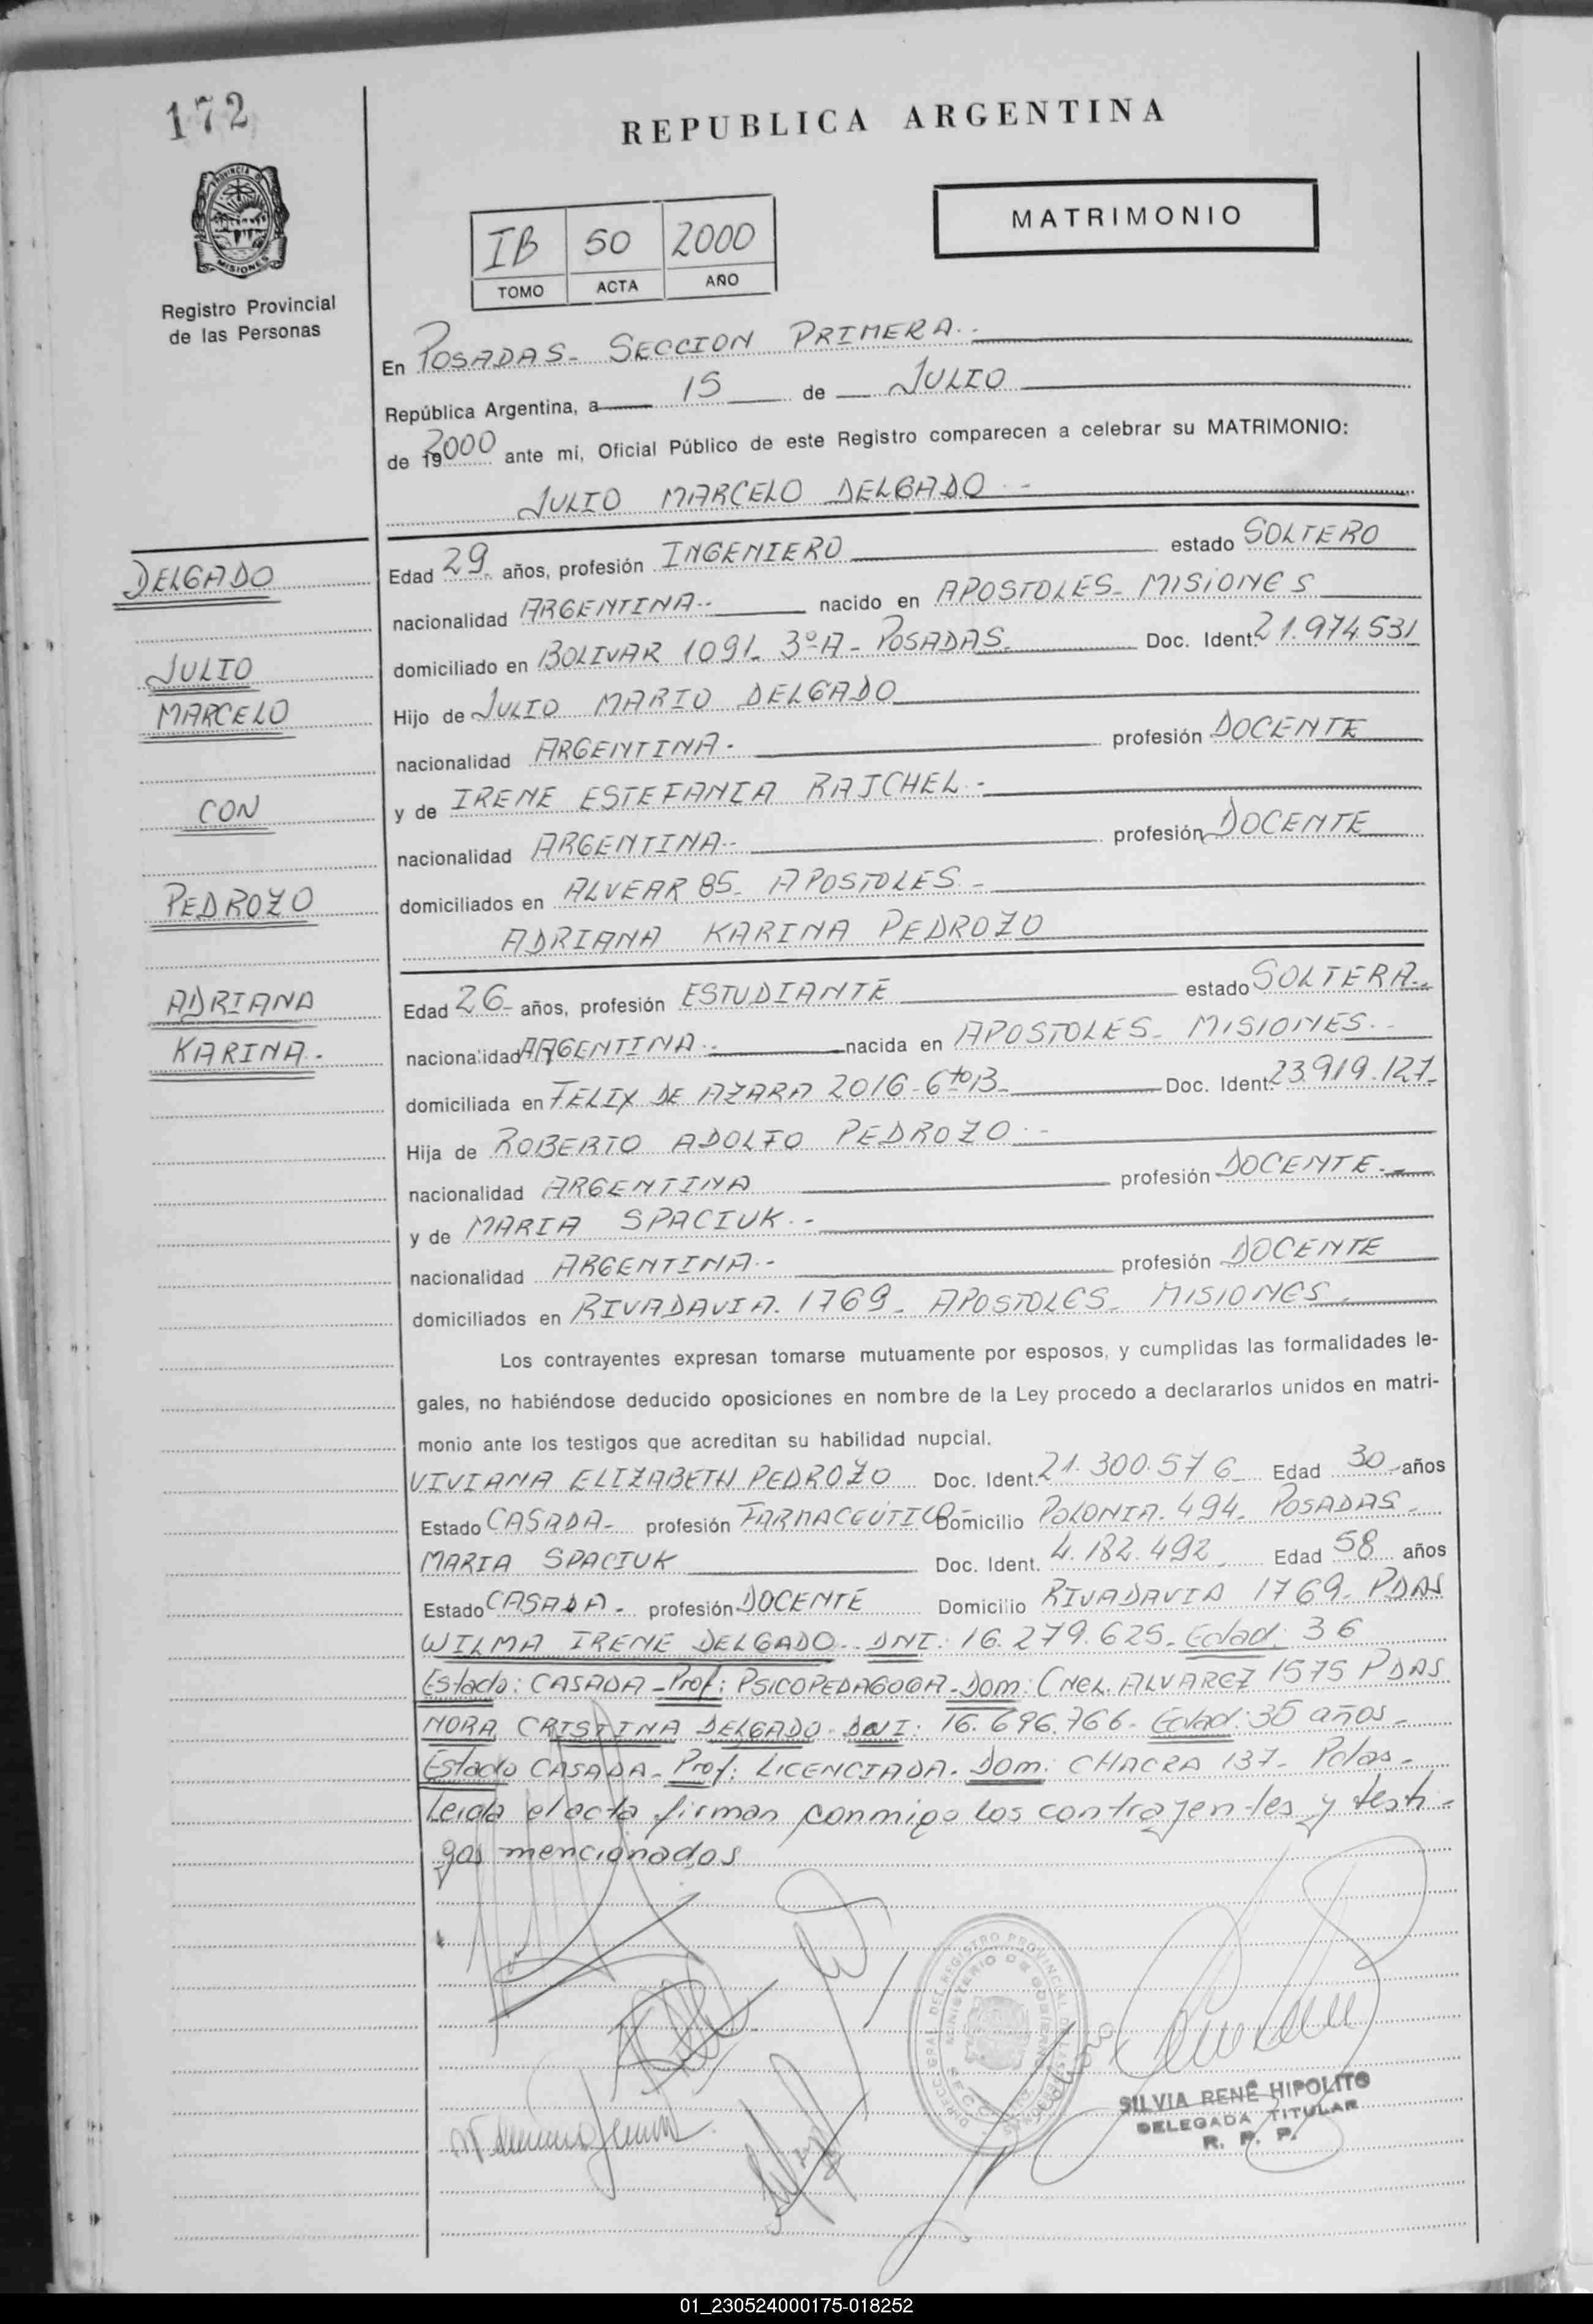 172
REPUBLICA ARGENTINA
PROVINCIA DE
MISIONES
Registro Provincial
de las Personas
MATRIMONIO
IB 50 2000
TOMO ACTA AÑO
En POSADAS- SECCION PRIMERA.-
República Argentina, a 15 de JULIO
de 2000 ante mi, Oficial Público de este Registro comparecen a celebrar su MATRIMONIO:
JULIO MARCELO DELGADO.-
DELGADO
JULIO
MARCELO
CON
PEDROZO
ADRIANA
KARINA.-
Edad 29- años, profesión INGENIERO estado SOLTERO
nacionalidad ARGENTINA.- nacido en APOSTOLES- MISIONES
domiciliado en BOLIVAR 1091- 3ºA- POSADAS- Doc. Ident. 21.974.531
Hijo de JULIO MARIO DELGADO
nacionalidad ARGENTINA.- profesión DOCENTE
y de IRENE ESTEFANIA RAJCHEL.-
nacionalidad ARGENTINA.- profesión DOCENTE
domiciliados en ALVEAR 85- APOSTOLES.-
ADRIANA KARINA PEDROZO
Edad 26- años, profesión ESTUDIANTE estado SOLTERA.-
nacionalidad ARGENTINA.- nacida en APOSTOLES- MISIONES.-
domiciliada en FELIX DE AZARA 2016- 6toB- Doc. Ident. 23.919.127-
Hija de ROBERTO ADOLFO PEDROZO.-
nacionalidad ARGENTINA profesión DOCENTE.-
y de MARIA SPACIUK.-
nacionalidad ARGENTINA.- profesión DOCENTE
domiciliados en RIVADAVIA. 1769- APOSTOLES- MISIONES-
Los contrayentes expresan tomarse mutuamente por esposos, y cumplidas las formalidades le-
gales, no habiéndose deducido oposiciones en nombre de la Ley procedo a declararlos unidos en matri-
monio ante los testigos que acreditan su habilidad nupcial.
VIVIANA ELIZABETH PEDROZO Doc. Ident. 21.300.576 Edad 30- años
Estado CASADA- profesión FARMACEÚTICA- Domicilio POLONIA- 494- POSADAS-
MARIA SPACIUK Doc. Ident. 4.182.492 Edad 58 años
Estado CASADA- profesión DOCENTE Domicilio RIVADAVIA 1769- PDAS
WILMA IRENE DELGADO.- DNI: 16.279.625- Edad: 36
Estado: CASADA- Prof: PSICOPEDAGOGA- Dom: CNEL. ALVAREZ 1575 PDAS
NORA CRISTINA DELGADO- DNI: 16.696.766- Edad: 35 años-
Estado CASADA- Prof: LICENCIADA- Dom: CHACRA 137- Pdas-
Leida el acta firman conmigo los contrayentes y testi-
gos mencionados
SILVIA RENÉ HIPOLITO
DELEGADA TITULAR
R. P. P.
01_230524000175-018252